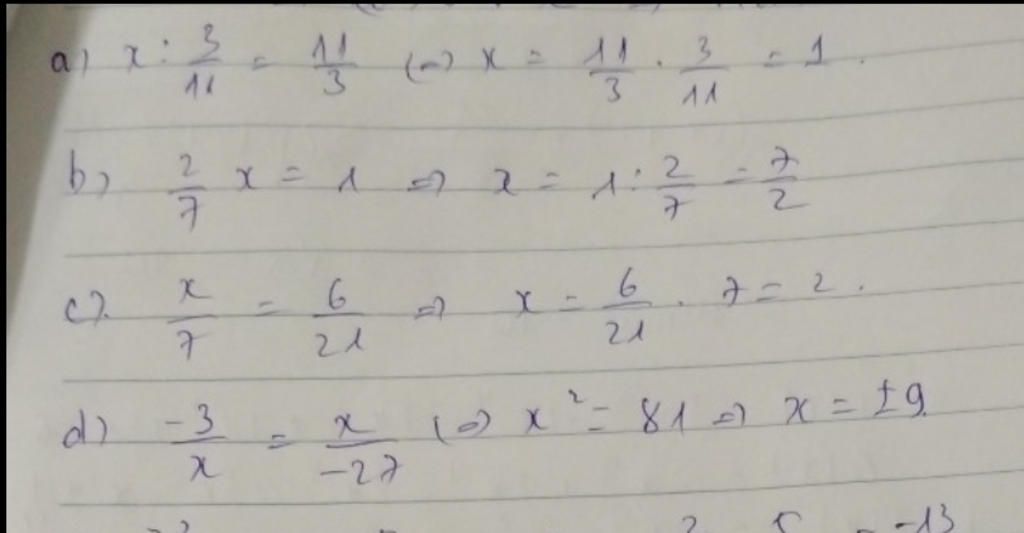 a) x : 3/11 = 11/3 (=) x = 11/3 . 3/11 = 1 .
b) 2/7 x = 1 => x = 1 : 2/7 = 7/2
c) x/7 = 6/21 => x = 6/21 . 7 = 2 .
d) -3/x = x/-27 (=) x² = 81 => x = ±9
-13